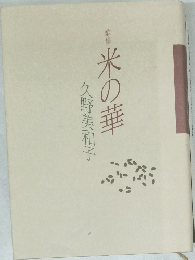 米の華
久野美和子